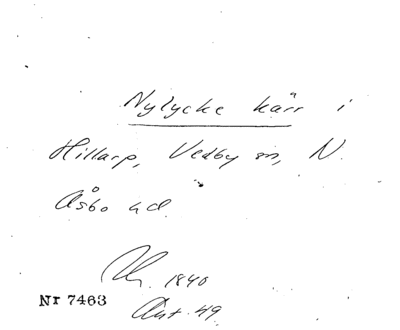 Nylycke kärr i
Hillarp, Vedby sn, N.
Åsbo hd.
1840
Nr 7463
Ant. 49